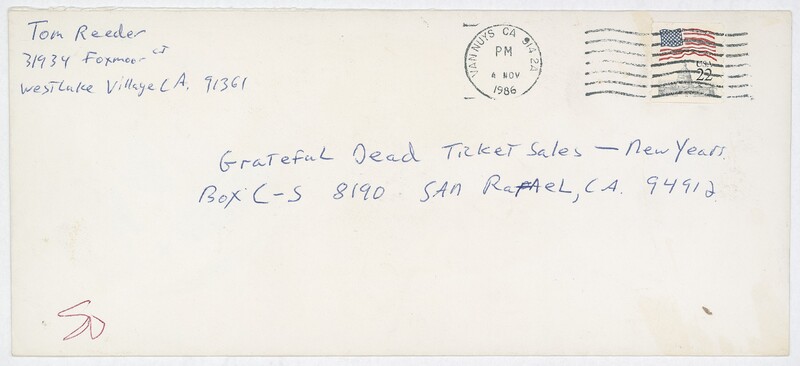 Tom Reeder
31934 Foxmoor CT
Westlake Village CA. 91361
VAN NUYS CA 914 2A
PM
4 NOV
1986
USA
22
Grateful Dead Ticket Sales — New Years.
Box C-S 8190 SAN RaFAeL, CA. 94912